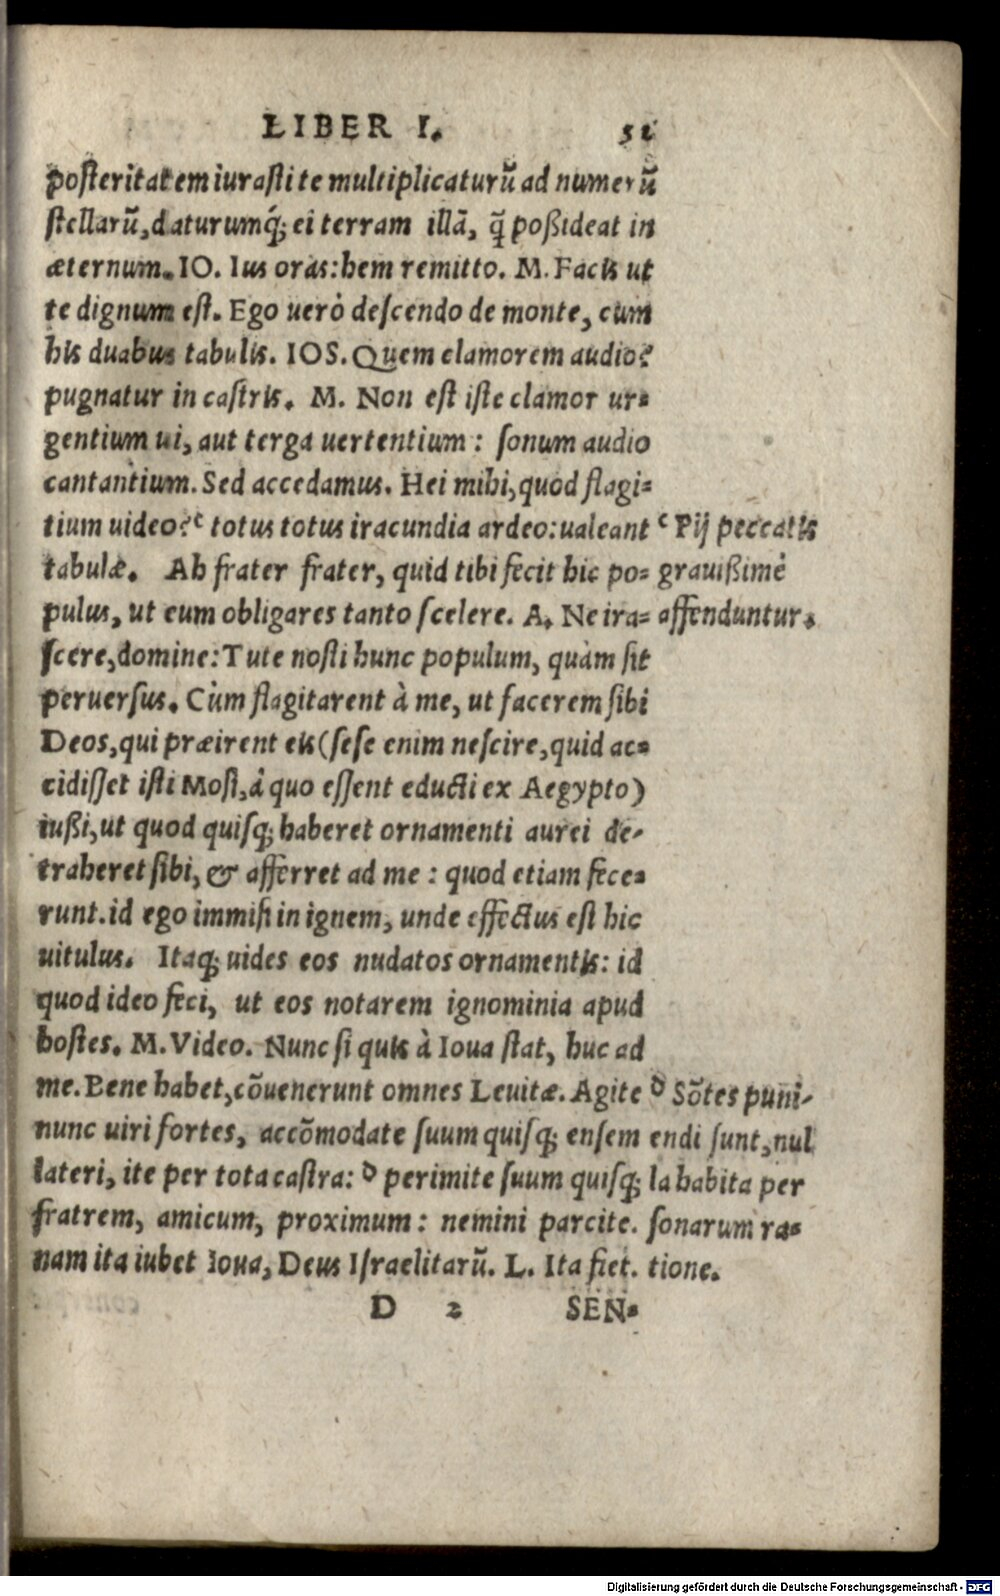 LIBER I. 51
posteritatem iurasti te multiplicaturũ ad numerũ
stellarũ, daturumq́; ei terram illã, q̃ poßideat in
æternum. IO. Ius oras: hem remitto. M. Facis ut
te dignum est. Ego uerò descendo de monte, cum
his duabus tabulis. IOS. Quem clamorem audio?
pugnatur in castris. M. Non est iste clamor ur-
gentium ui, aut terga uertentium: sonum audio
cantantium. Sed accedamus. Hei mihi, quod flagi-
tium uideo? ᶜ totus totus iracundia ardeo: ualeant
tabulæ. Ah frater frater, quid tibi fecit hic po-
pulus, ut eum obligares tanto scelere. A. Ne ira-
scere, domine: Tute nosti hunc populum, quàm sit
peruersus. Cùm flagitarent à me, ut facerem sibi
Deos, qui præirent eis (sese enim nescire, quid ac-
cidisset isti Mosi, à quo essent educti ex Aegypto)
iußi, ut quod quisq; haberet ornamenti aurei de-
traheret sibi, & afferret ad me: quod etiam fece-
runt. id ego immisi in ignem, unde effectus est hic
uitulus. Itaq; uides eos nudatos ornamentis: id
quod ideo feci, ut eos notarem ignominia apud
hostes. M. Video. Nunc si quis à Ioua stat, huc ad
me. Bene habet, cõuenerunt omnes Leuitæ. Agite
nunc uiri fortes, accõmodate suum quisq; ensem
lateri, ite per tota castra: ᵈ perimite suum quisq;
fratrem, amicum, proximum: nemini parcite.
nam ita iubet Ioua, Deus Israelitarũ. L. Ita fiet.
ᶜ Pij peccatis
grauißimè
affenduntur.
ᵈ Sõtes puni-
endi sunt, nul
la habita per
sonarum ra-
tione.
D 2 SEN-
Digitalisierung gefördert durch die Deutsche Forschungsgemeinschaft - DFG